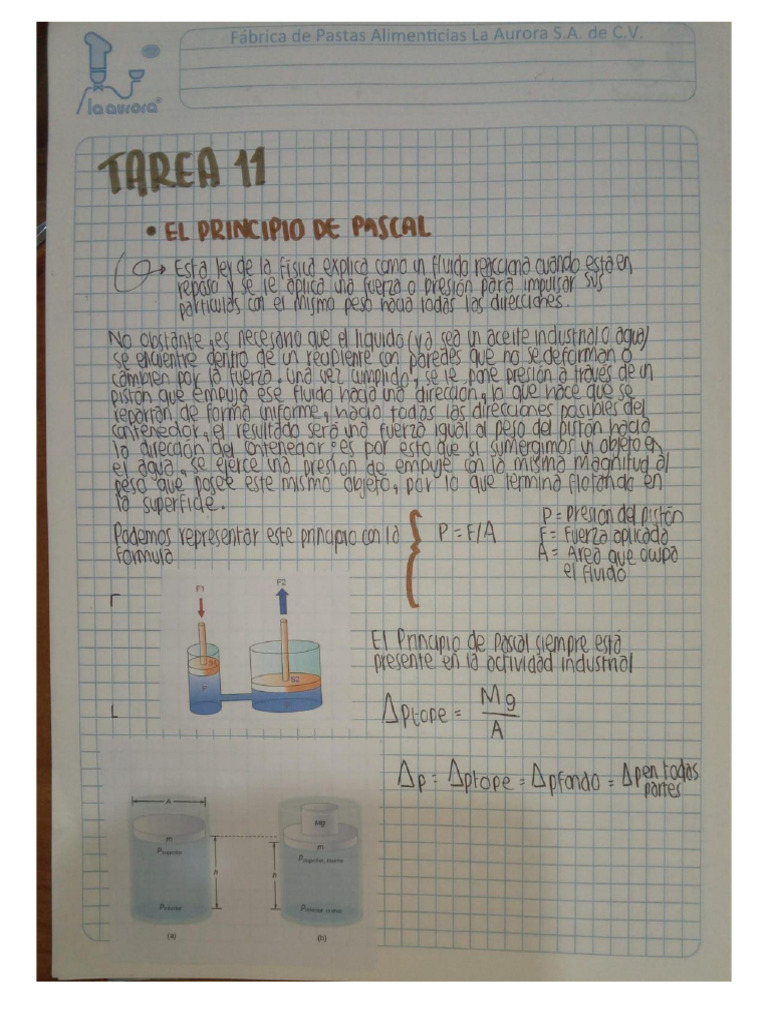 Fábrica de Pastas Alimenticias La Aurora S.A. de C.V.
la aurora
TAREA 11
• EL PRINCIPIO DE PASCAL
Esta ley de la física explica como un fluido reacciona cuando está en
reposo y se le aplica una fuerza o presión para impulsar sus
partículas con el mismo peso hacia todas las direcciones.
No obstante, es necesario que el líquido (ya sea un aceite industrial o agua)
se encuentre dentro de un recipiente con paredes que no se deforman o
cambien por la fuerza. Una vez cumplido, se le pone presión a través de un
pistón que empuja ese fluido hacia una dirección, lo que hace que se
repartan de forma uniforme, hacia todas las direcciones posibles del
contenedor, el resultado será una fuerza igual al peso del pistón hacia
la dirección del contenedor es por esto que si sumergimos un objeto en
el agua, se ejerce una presión de empuje con la misma magnitud al
peso que posee este mismo objeto, por lo que termina flotando en
la superficie.
Podemos representar este principio con la
formula
P = F/A
P = Presión del pistón
F = Fuerza aplicada
A = Area que ocupa
el fluido
F1
F2
S1
S2
P
P
El Principio de Pascal siempre está
presente en la actividad industrial
Δptope = Mg
A
Δp = Δptope = Δpfondo = Δp en todas
partes
A
m
P superior
h
P inferior
(a)
Mg
m
P superior,
h
P inferior
(b)